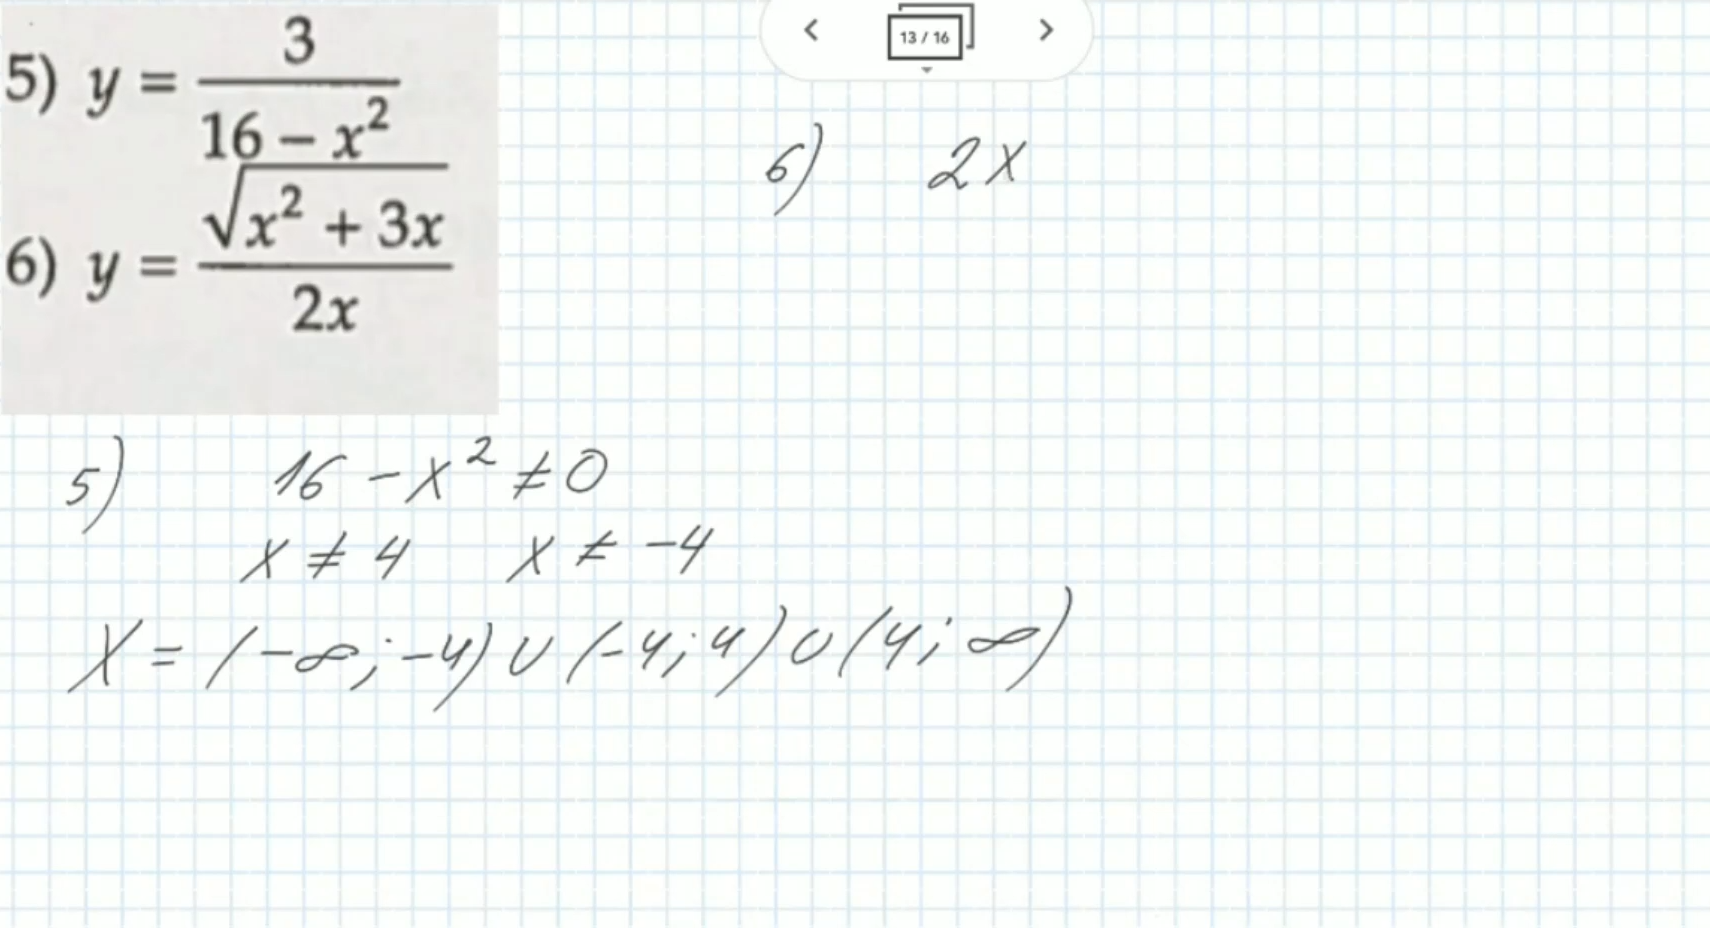 5) y = 3 / (16 − x²)
6) y = √(x² + 3x) / 2x
13 / 16
6) 2x
5) 16 − x² ≠ 0
x ≠ 4 x ≠ −4
X = (−∞; −4) ∪ (−4; 4) ∪ (4; ∞)